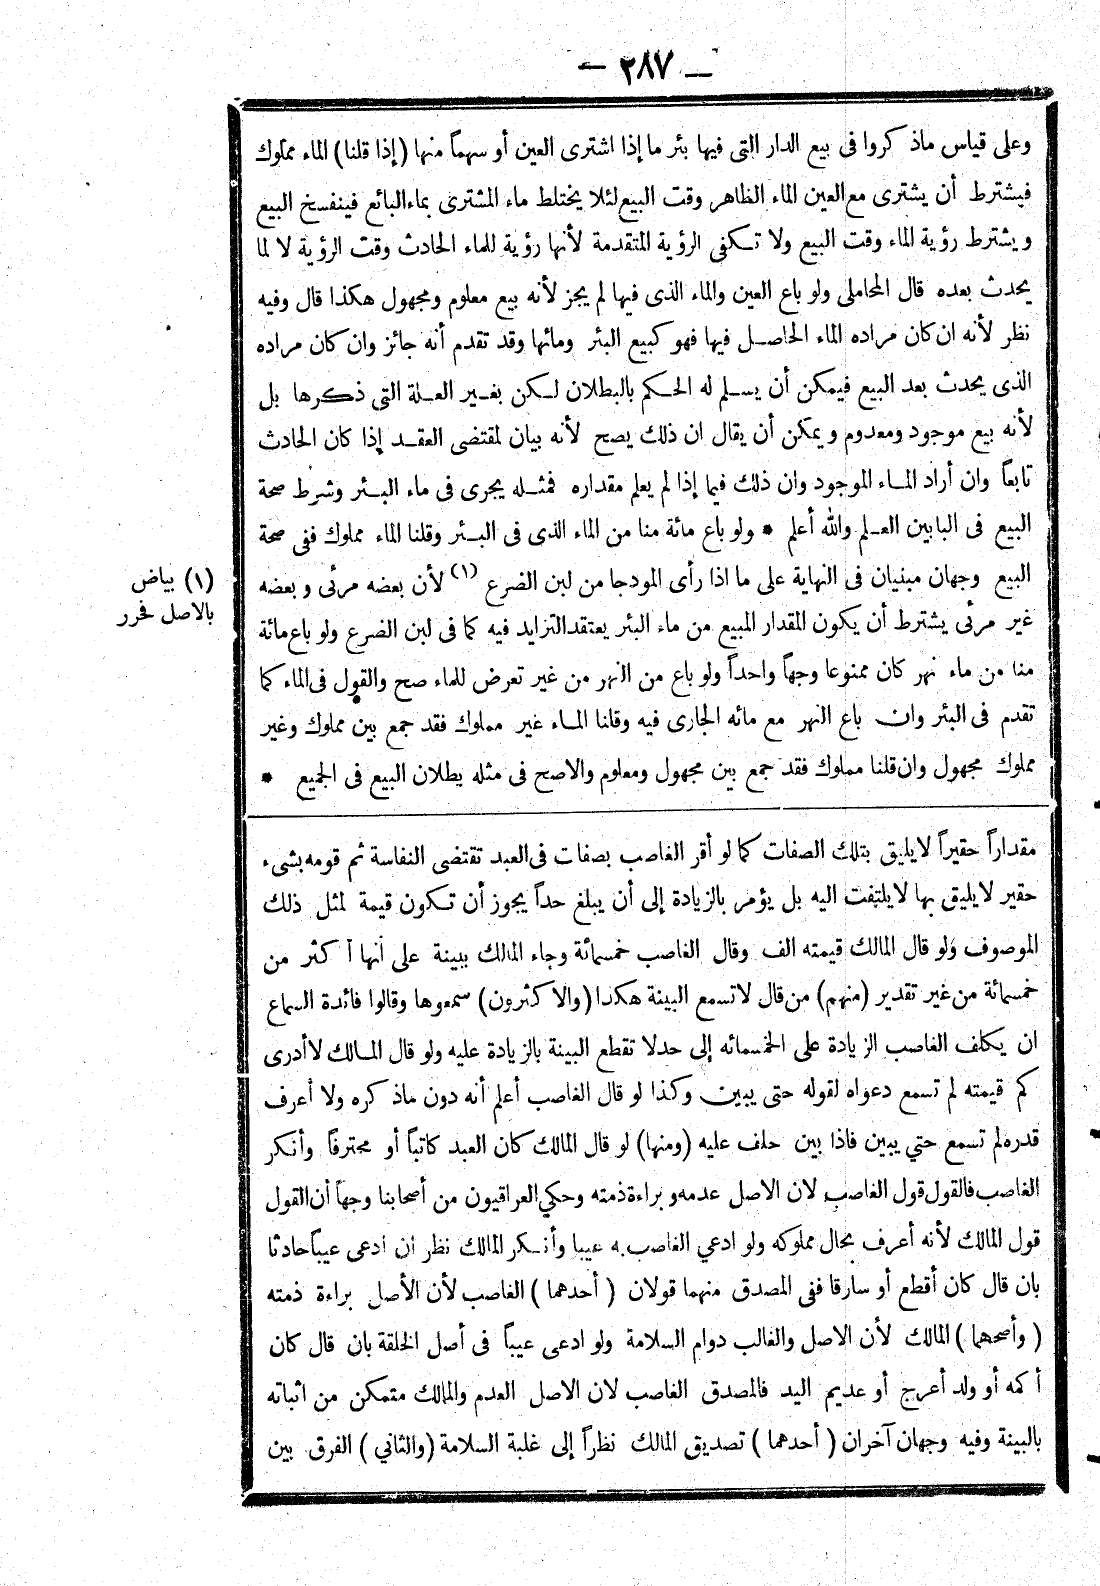 — ٢٨٧ —
وعلى قياس ماذكروا فى بيع الدار التى فيها بئر ما إذا اشترى العين أو سهماً منها (إذا قلنا) الماء مملوك
فيشترط أن يشترى مع العين الماء الظاهر وقت البيع لئلا يختلط ماء المشترى بماء البائع فينفسخ البيع
ويشترط رؤية الماء وقت البيع ولا تكفى الرؤية المتقدمة لأنها رؤية للماء الحادث وقت الرؤية لا لما
يحدث بعده قال المحاملى ولو باع العين والماء الذى فيها لم يجز لأنه بيع معلوم ومجهول هكذا قال وفيه
نظر لأنه ان كان مراده الماء الحاصل فيها فهو كبيع البئر ومائها وقد تقدم أنه جائز وان كان مراده
الذى يحدث بعد البيع فيمكن أن يسلم له الحكم بالبطلان لكن بغير العلة التى ذكرها بل
لأنه بيع موجود ومعدوم ويمكن أن يقال ان ذلك يصح لأنه بيان لمقتضى العقد إذا كان الحادث
تابعاً وان أراد الماء الموجود وان ذلك فيما إذا لم يعلم مقداره فمثله يجرى فى ماء البئر وشرط صحة
البيع فى البابين العلم والله أعلم * ولو باع مائة منا من الماء الذى فى البئر وقلنا الماء مملوك ففى صحة
البيع وجهان مبنيان فى النهاية على ما اذا رأى المودجا من لبن الضرع (١) لأن بعضه مرئى وبعضه
غير مرئى يشترط أن يكون المقدار المبيع من ماء البئر يعتقد التزايد فيه كما فى لبن الضرع ولو باع مائة
منا من ماء نهر كان ممنوعا وجهاً واحداً ولو باع من النهر من غير تعرض للماء صح والقول فى الماء كما
تقدم فى البئر وان باع النهر مع مائه الجارى فيه وقلنا الماء غير مملوك فقد جمع بين مملوك وغير
مملوك مجهول وان قلنا مملوك فقد جمع بين مجهول ومعلوم والاصح فى مثله يطلان البيع فى الجميع *
(١) بياض
بالاصل فحرر
مقداراً حقيراً لايليق بتلك الصفات كما لو أقر الغاصب بصفات فى العبد تقتضى النفاسة ثم قومه بشىء
حقير لايليق بها لايلتفت اليه بل يؤمر بالزيادة إلى أن يبلغ حداً يجوز أن تكون قيمة لمثل ذلك
الموصوف ولو قال المالك قيمته الف وقال الغاصب خمسمائة وجاء المالك ببينة على أنها أكثر من
خمسمائة من غير تقدير (منهم) من قال لاتسمع البينة هكذا (والاكثرون) سمعوها وقالوا فائدة السماع
ان يكلف الغاصب الزيادة على الخمسمائه إلى حدلا تقطع البينة بالزيادة عليه ولو قال المالك لاأدرى
كم قيمته لم تسمع دعواه لقوله حتى يبين وكذا لو قال الغاصب أعلم أنه دون ماذكره ولا أعرف
قدره لم تسمع حتي يبين فاذا بين حلف عليه (ومنها) لو قال المالك كان العبد كاتباً أو محترفاً وأنكر
الغاصب فالقول قول الغاصب لان الاصل عدمه وبراءة ذمته وحكي العراقيون من أصحابنا وجهاً أن القول
قول المالك لأنه أعرف بحال مملوكه ولو ادعي الغاصب به عيبا وأنكر المالك نظر ان ادعى عيباً حادثا
بان قال كان أقطع أو سارقا ففى المصدق منهما قولان (أحدهما) الغاصب لأن الأصل براءة ذمته
(وأصحهما) المالك لأن الاصل والغالب دوام السلامة ولو ادعى عيباً فى أصل الخلقة بان قال كان
أكمه أو ولد أعرج أو عديم اليد فالمصدق الغاصب لان الاصل العدم والمالك متمكن من اثباته
بالبينة وفيه وجهان آخران (أحدهما) تصديق المالك نظراً إلى غلبة السلامة (والثاني) الفرق بين